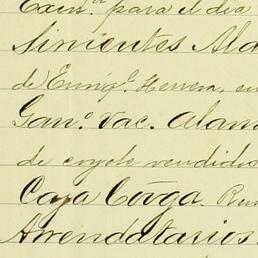 Exin.ⁿ para el dia
Simientes Ala
de Enriq.ᵉ Herrera, en
Gan.º Vac. Alam
de coyote vendidos
Caja Córga. Rem
Arrendatarios.